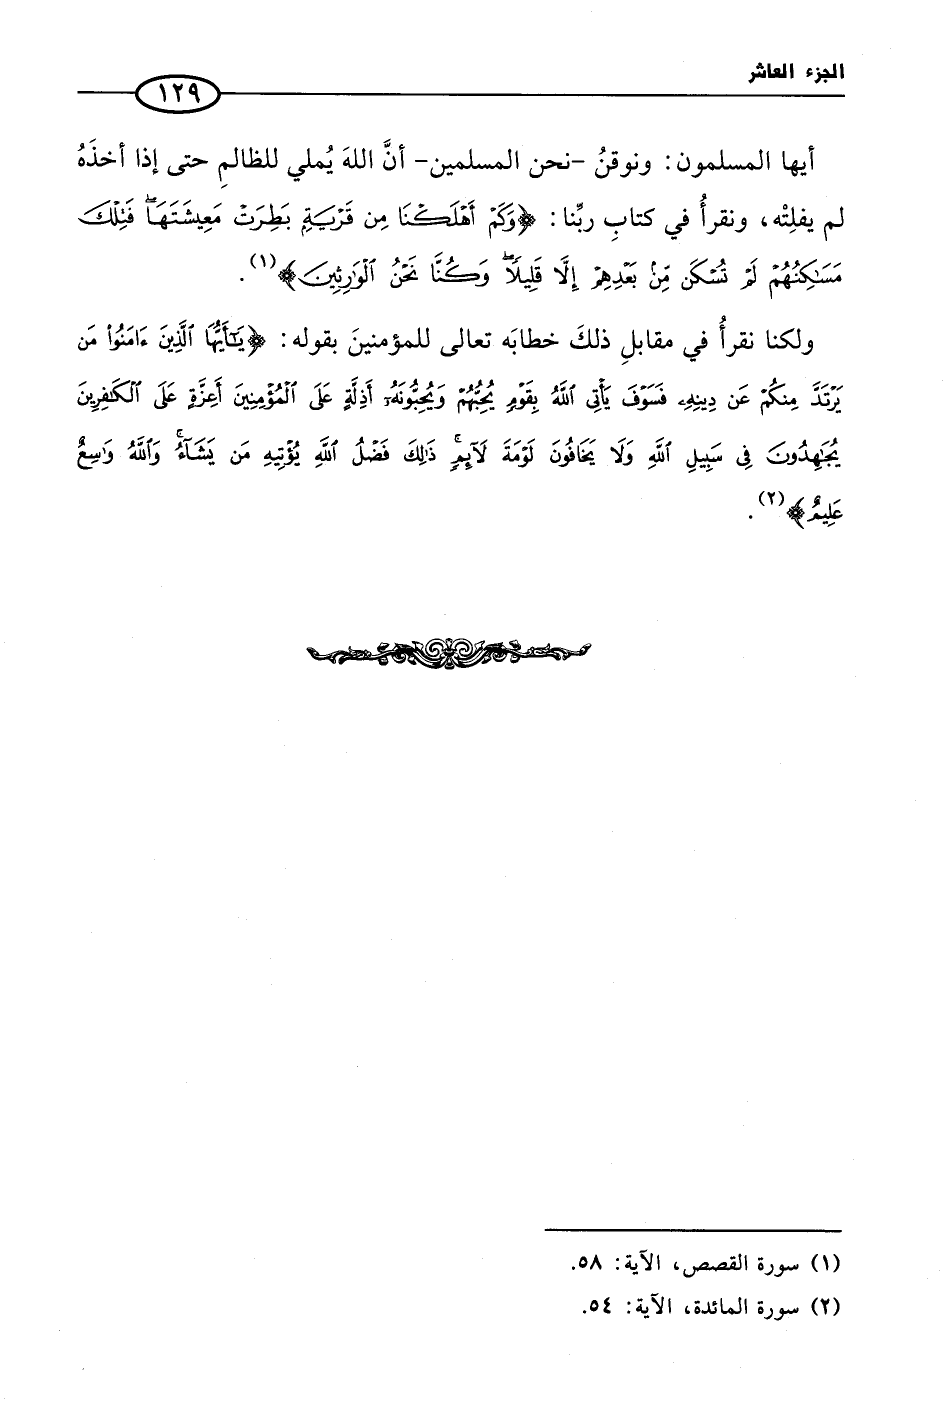 الجزء العاشر
١٢٩
أيها المسلمون: ونوقنُ -نحن المسلمين- أنَّ اللهَ يُملي للظالمِ حتى إذا أخذَهُ
لم يفلِتْه، ونقرأُ في كتابِ ربِّنا: ﴿وَكَمْ أَهْلَكْنَا مِن قَرْيَةٍ بَطِرَتْ مَعِيشَتَهَا ۖ فَتِلْكَ
مَسَـٰكِنُهُمْ لَمْ تُسْكَن مِّنۢ بَعْدِهِمْ إِلَّا قَلِيلًا ۖ وَكُنَّا نَحْنُ ٱلْوَٰرِثِينَ﴾(١).
ولكنا نقرأُ في مقابلِ ذلكَ خطابَه تعالى للمؤمنينَ بقوله: ﴿يَـٰٓأَيُّهَا ٱلَّذِينَ ءَامَنُوا۟ مَن
يَرْتَدَّ مِنكُمْ عَن دِينِهِۦ فَسَوْفَ يَأْتِى ٱللَّهُ بِقَوْمٍ يُحِبُّهُمْ وَيُحِبُّونَهُۥٓ أَذِلَّةٍ عَلَى ٱلْمُؤْمِنِينَ أَعِزَّةٍ عَلَى ٱلْكَـٰفِرِينَ
يُجَـٰهِدُونَ فِى سَبِيلِ ٱللَّهِ وَلَا يَخَافُونَ لَوْمَةَ لَآئِمٍ ۚ ذَٰلِكَ فَضْلُ ٱللَّهِ يُؤْتِيهِ مَن يَشَآءُ ۚ وَٱللَّهُ وَٰسِعٌ
عَلِيمٌ﴾(٢).
(١) سورة القصص، الآية: ٥٨.
(٢) سورة المائدة، الآية: ٥٤.